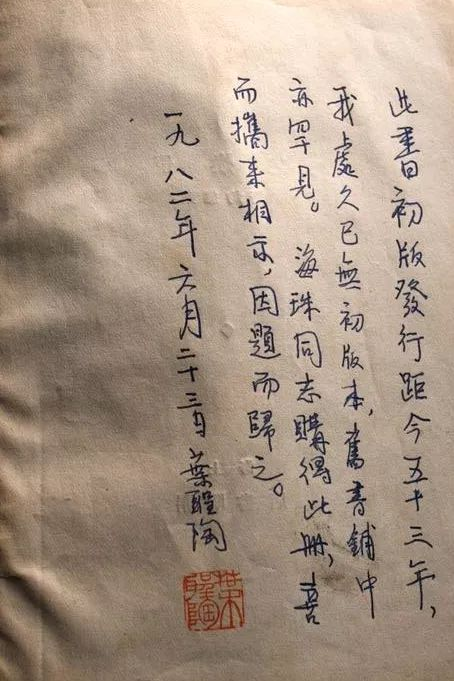 此書初版發行距今五十三年，
我處久已無初版本，舊書鋪中
亦罕見。海珠同志購得此册，喜
而攜來相示，因題而歸之。
一九八二年六月二十三日 葉聖陶
葉聖陶